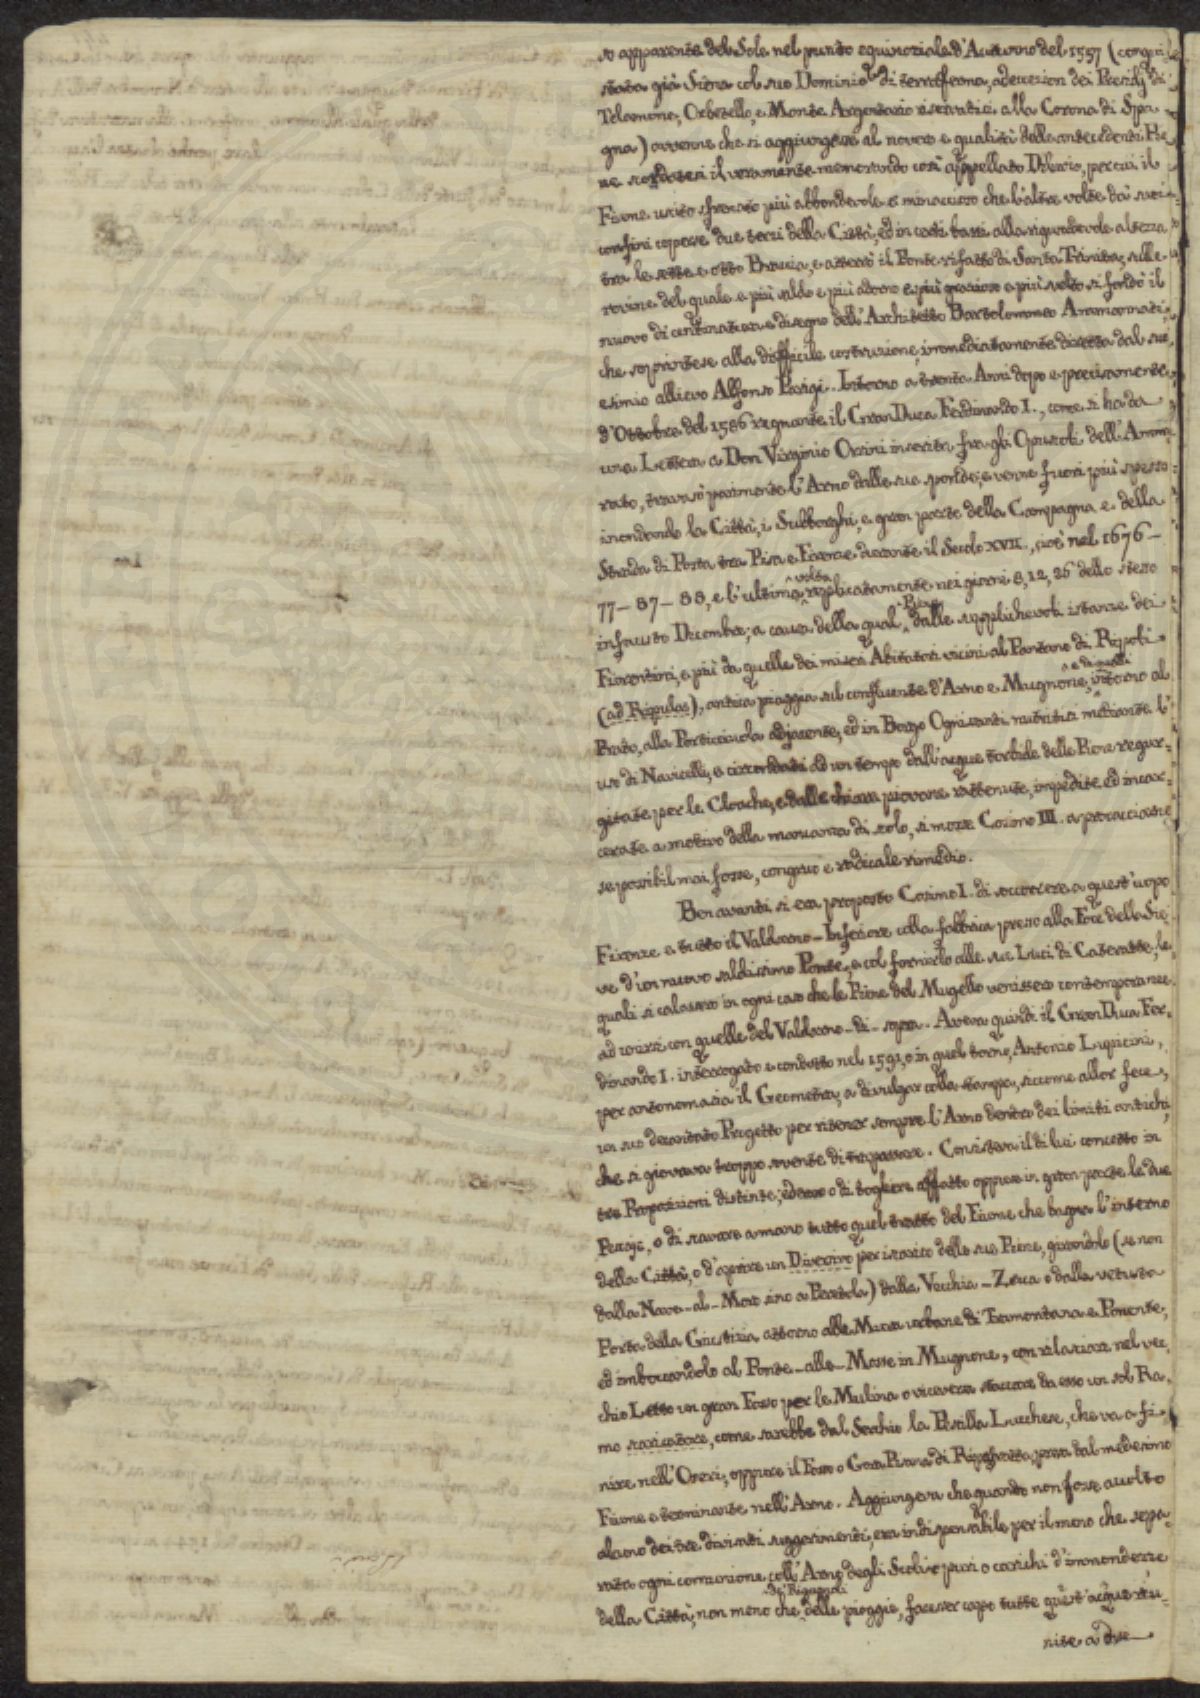 so apparente del Sole nel punto equinoziale d'Autunno del 1557 (conqui
stata già Siena col suo Dominio di terraferma, ad eccezion dei Presidj di
Telamone, Orbetello, e Monte Argentario riservatisi alla Corona di Spa
gna) avvenne che si aggiungesse al novero e qualità delle antecedenti Pie
ne il veramente memorando così appellato Diluvio, per cui il
Fiume uscito sfrenato più abbondevole e minaccioso che l'altre volte dai suoi
confini coperse due terzi della Città, ed in certi bassi alla riguardevole altezza
tra le sette e otto Braccia, e atterrò il Ponte rifatto di Santa Trinita, sulle
rovine del quale e più saldo e più adorno e più grazioso e più svelto si fondò il
nuovo di centinatura e disegno dell'Architetto Bartolommeo Ammannati,
che soprintese alla difficile costruzione, immediatamente diretta dal suo
esimio allievo Alfonso Parigi. Intorno a trenta Anni dopo e precisamente
d'Ottobre del 1586 regnante il Gran Duca Ferdinando I., come si ha da
una Lettera a Don Virginio Orsini inserita fra gli Opuscoli dell'Ammi
rato, travasò parimente l'Arno dalle sue sponde, e venne fuori più spesso
inondando la Città, i Subborghi, e gran parte della Campagna e della
Strada di Posta tra Pisa e Firenze durante il Secolo XVII., cioè nel 1676 –
77 – 87 – 88, e l'ultima volta replicatamente nei giorni 8, 12, 26 dello stesso
infausto Dicembre; a causa della qual Piena dalle supplichevoli istanze dei
Fiorentini, e più da quelle dei miseri Abitatori vicini al Pantano di Ripoli
(ad Ripulas), antica piaggia sul confluente d'Arno e Mugnone, e di quelli intorno al
Prato, alla Porticciuola adjacente, ed in Borgo Ognissanti nutritisi mediante l'
uso di Navicelli, e circondati ad un tempo dall'acque torbide delle Piene regur-
gitate per le Cloache, e dalle chiare piovane rattenute, impedite ed incar-
cerate a motivo della mancanza di scolo, si mosse Cosimo III. a procacciarne
se possibil mai fosse, congruo e radicale rimedio.
Ben avanti si era proposto Cosimo I. di soccorrere a quest'uopo
Firenze e tutto il Valdarno-Inferiore colla fabbrica presso alla Foce della Sie
ve d'un nuovo saldissimo Ponte, e col fornirlo alle sue Luci di Cateratte, le
quali si calassero in ogni caso che le Piene del Mugello venissero contemporanee
ad unirsi con quelle del Valdarno-di-sopra. Aveva quindi il Gran Duca Fer-
dinando I. interrogato e condotto nel 1591, o in quel torno, Antonio Lupicini,
per antonomasia il Geometra, a divulgar colla stampa, siccome allor fece,
un suo decantato Progetto per ritener sempre l'Arno dentro dei limiti antichi,
che si giovava troppo sovente di trapassare. Consisteva il di lui concetto in
tre Proposizioni distinte; ed erano o di togliere affatto oppure in gran parte le due
Pescaje, o di scavare a mano tutto quel tratto del Fiume che bagna l'interno
della Città, o d'aprire un Diversivo per iscarico delle sue Piene, girandolo (se non
dalla Nave-al-Moro sino a Peretola) dalla Vecchia-Zecca o dalla vetusta
Porta della Giustizia attorno alle Mura urbane di Tramontana e Ponente,
ed imboccandolo al Ponte-alle-Mosse in Mugnone, con rilasciare nel vec
chio Letto un gran Fosso per le Mulina o viceversa staccare da esso un sol Ra-
mo scaricatore, come sarebbe dal Serchio la Pescilla Lucchese, che va a fi-
nire nell'Ozeri, oppure il Fosso o Gora Pisana di Ripafratta presa dal medesimo
Fiume e terminante nell'Arno. Aggiungeva che quando non fosse accolto
alcuno dei tre divisati suggerimenti, era indispensabile per il meno che sepa-
rata ogni comunione coll'Arno degli Scoli o puri o carichi d'immondezze
della Città, non meno che de' Rigagnoli delle pioggie, facesser capo tutte quest'acque riu-
nite a due